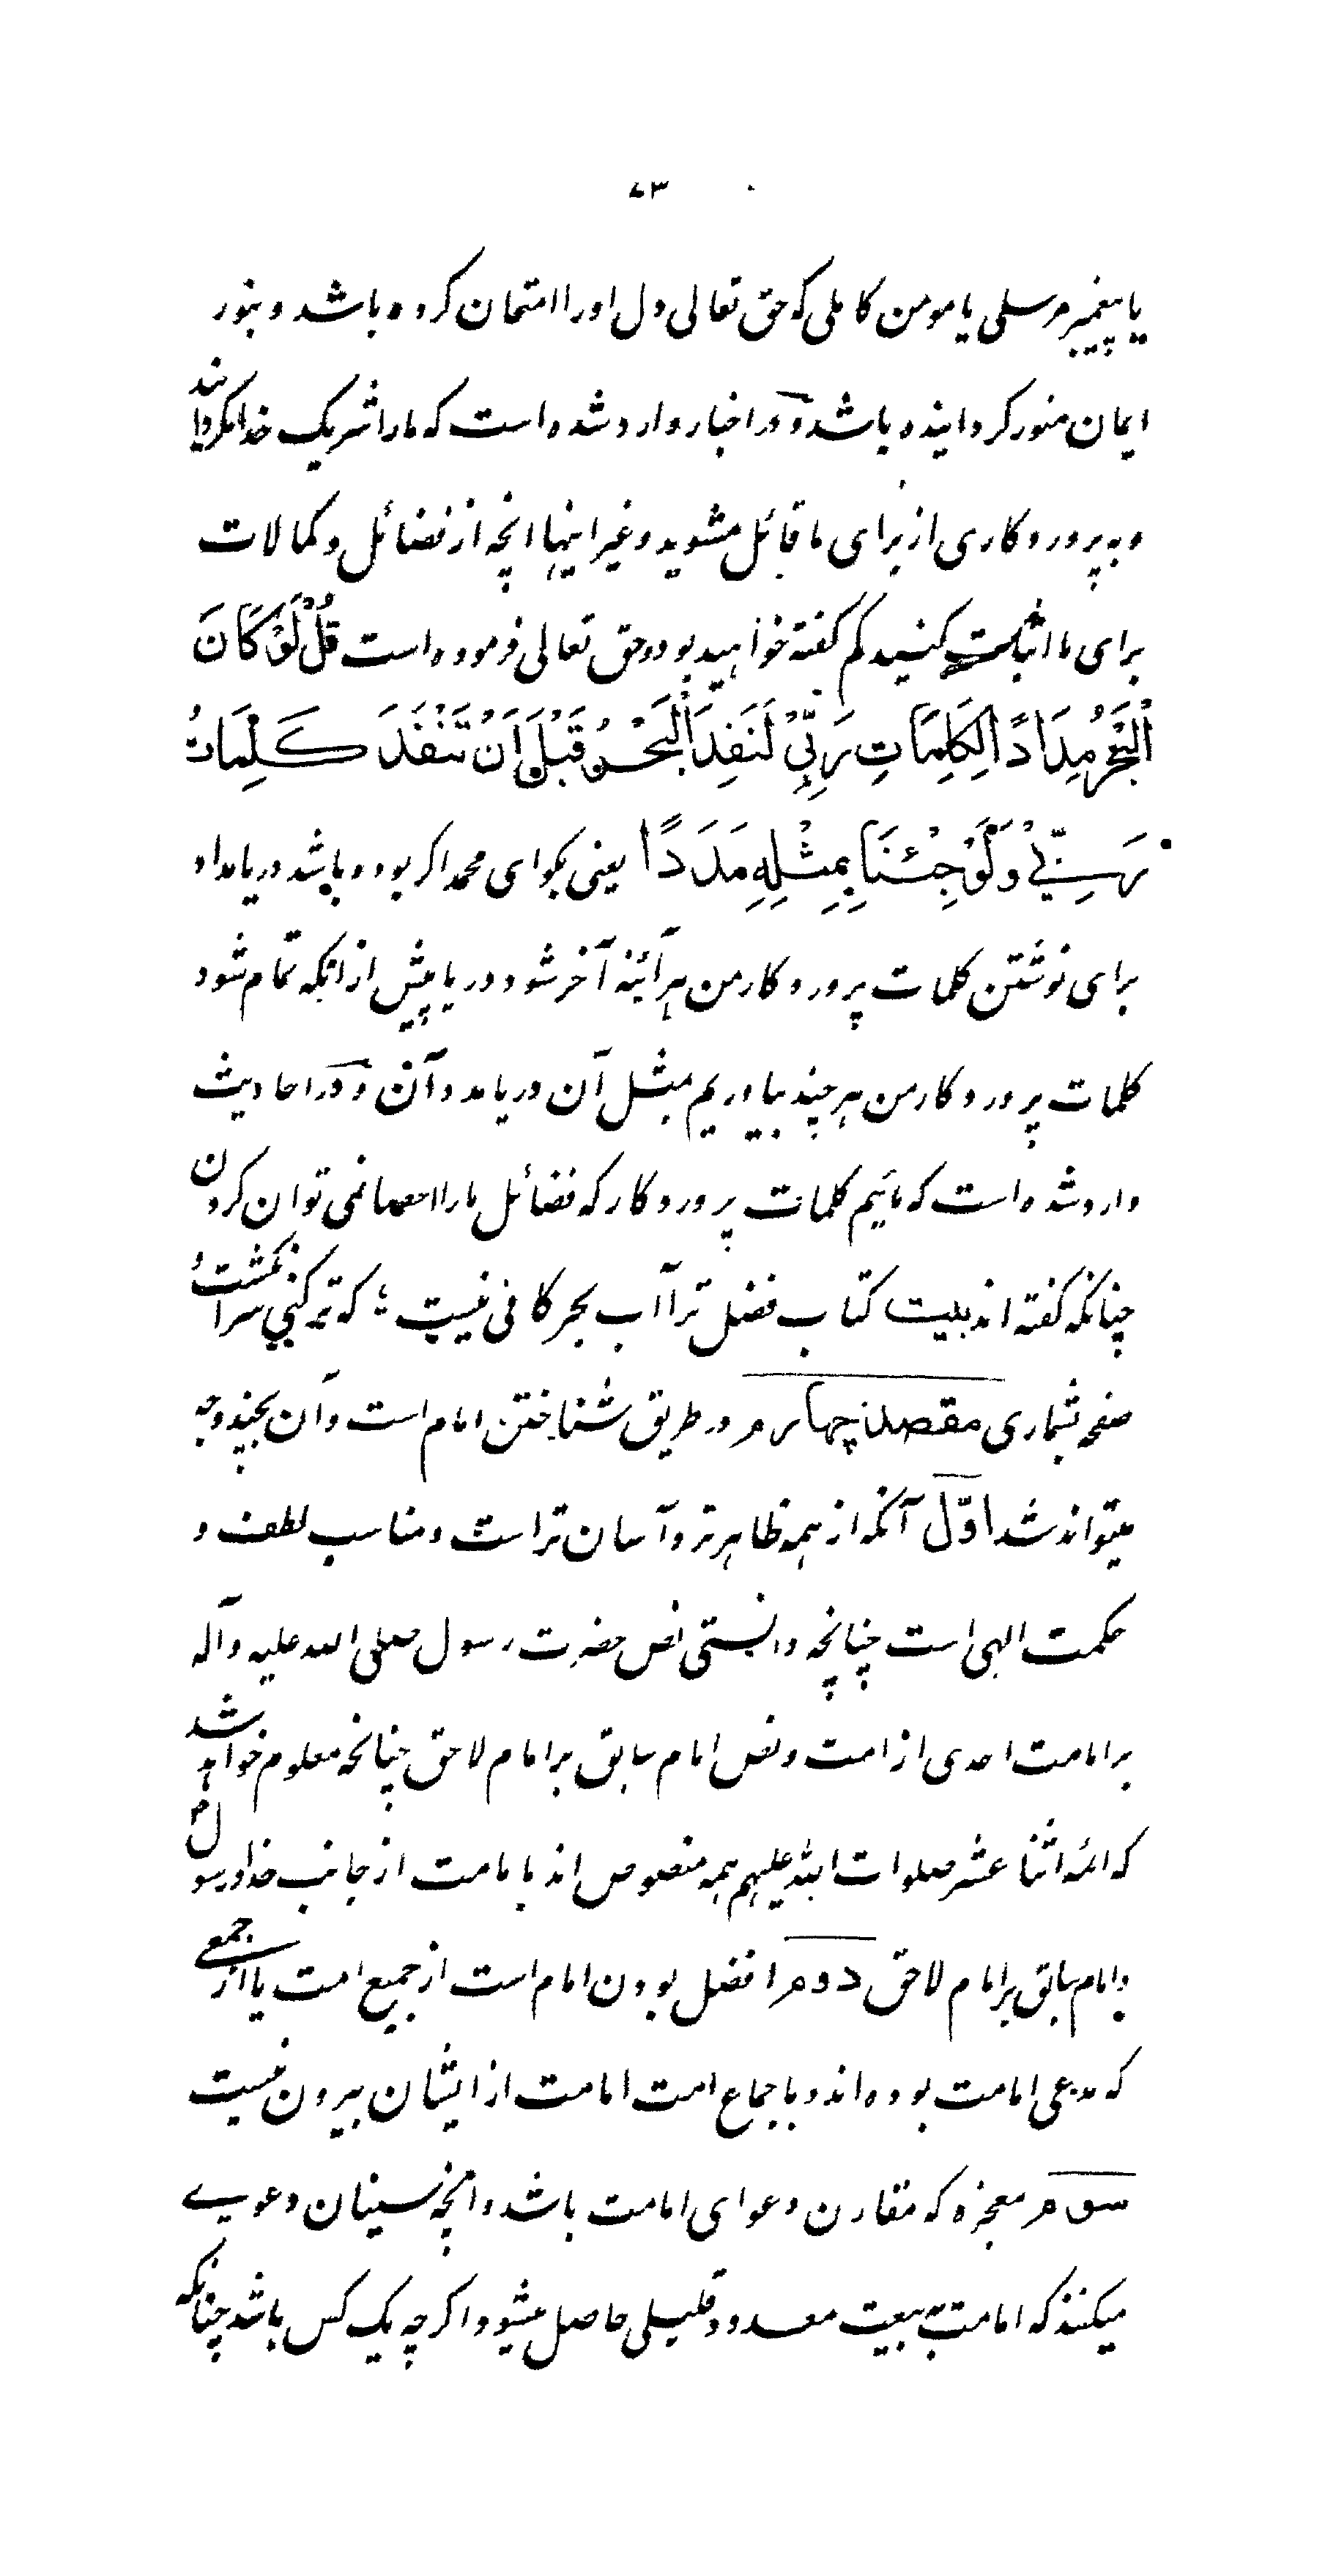 ۷۳
یا پیغمبر مرسلی یا مومن کاملی که حق تعالی دل اورا امتحان کرده باشد و بنور
ایمان منور کردانیده باشد و در اخبار وارد شده است که مارا شریک خدا مکردانید
و به پروردکاری از برای ما قائل مشوید و غیر اینها انچه از فضائل و کمالات
برای ما اثبات کنید کم کفته خواهید بود و حق تعالی فرموده است قُلْ لَوْ كَانَ
الْبَحْرُ مِدَادًا لِكَلِمَاتِ رَبِّيْ لَنَفِدَ الْبَحْرُ قَبْلَ اَنْ تَنْفَدَ كَلِمَاتُ
رَبِّيْ وَلَوْ جِئْنَا بِمِثْلِهِ مَدَدًا یعنی بکو ای محمد اکر بوده باشد دریا مداد
برای نوشتن کلمات پروردکار من هرآئینه آخر شود دریا پیش از انکه تمام شود
کلمات پروردکار من هرچند بیاوریم بمثل آن دریا مدد آن و در احادیث
وارد شده است که مائیم کلمات پروردکار که فضائل مارا احصا نمی توان کردن
چنانکه کفته اند بیت کتاب فضل ترا آب بحر کافی نیست ؛ که تر کنی سر انکشت و
صفحه بشماری مقصد چهارم در طریق شناختن امام است و آن بچند وجه
میتواند شد اوّل آنکه از همه ظاهر تر و آسان تر است و مناسب لطف و
حکمت الهی است چنانچه دانستی نص حضرت رسول صلی الله علیه و آله
بر امامت احدی از امت و نص امام سابق بر امام لاحق چنانچه معلوم خواهد شد
که ائمه اثنا عشر صلوات الله علیهم همه منصوص اند بامامت از جانب خدا و رسول
و امام سابق بر امام لاحق دوم افضل بودن امام است از جمیع امت یا از جمعی
که مدعی امامت بوده اند و باجماع امت امامت از ایشان بیرون نیست
سوم معجزه که مقارن دعوای امامت باشد و انچه سنیان دعوے
میکنند که امامت به بیعت معدود قلیلی حاصل میشود اکرچه یک کس باشد چنانکه